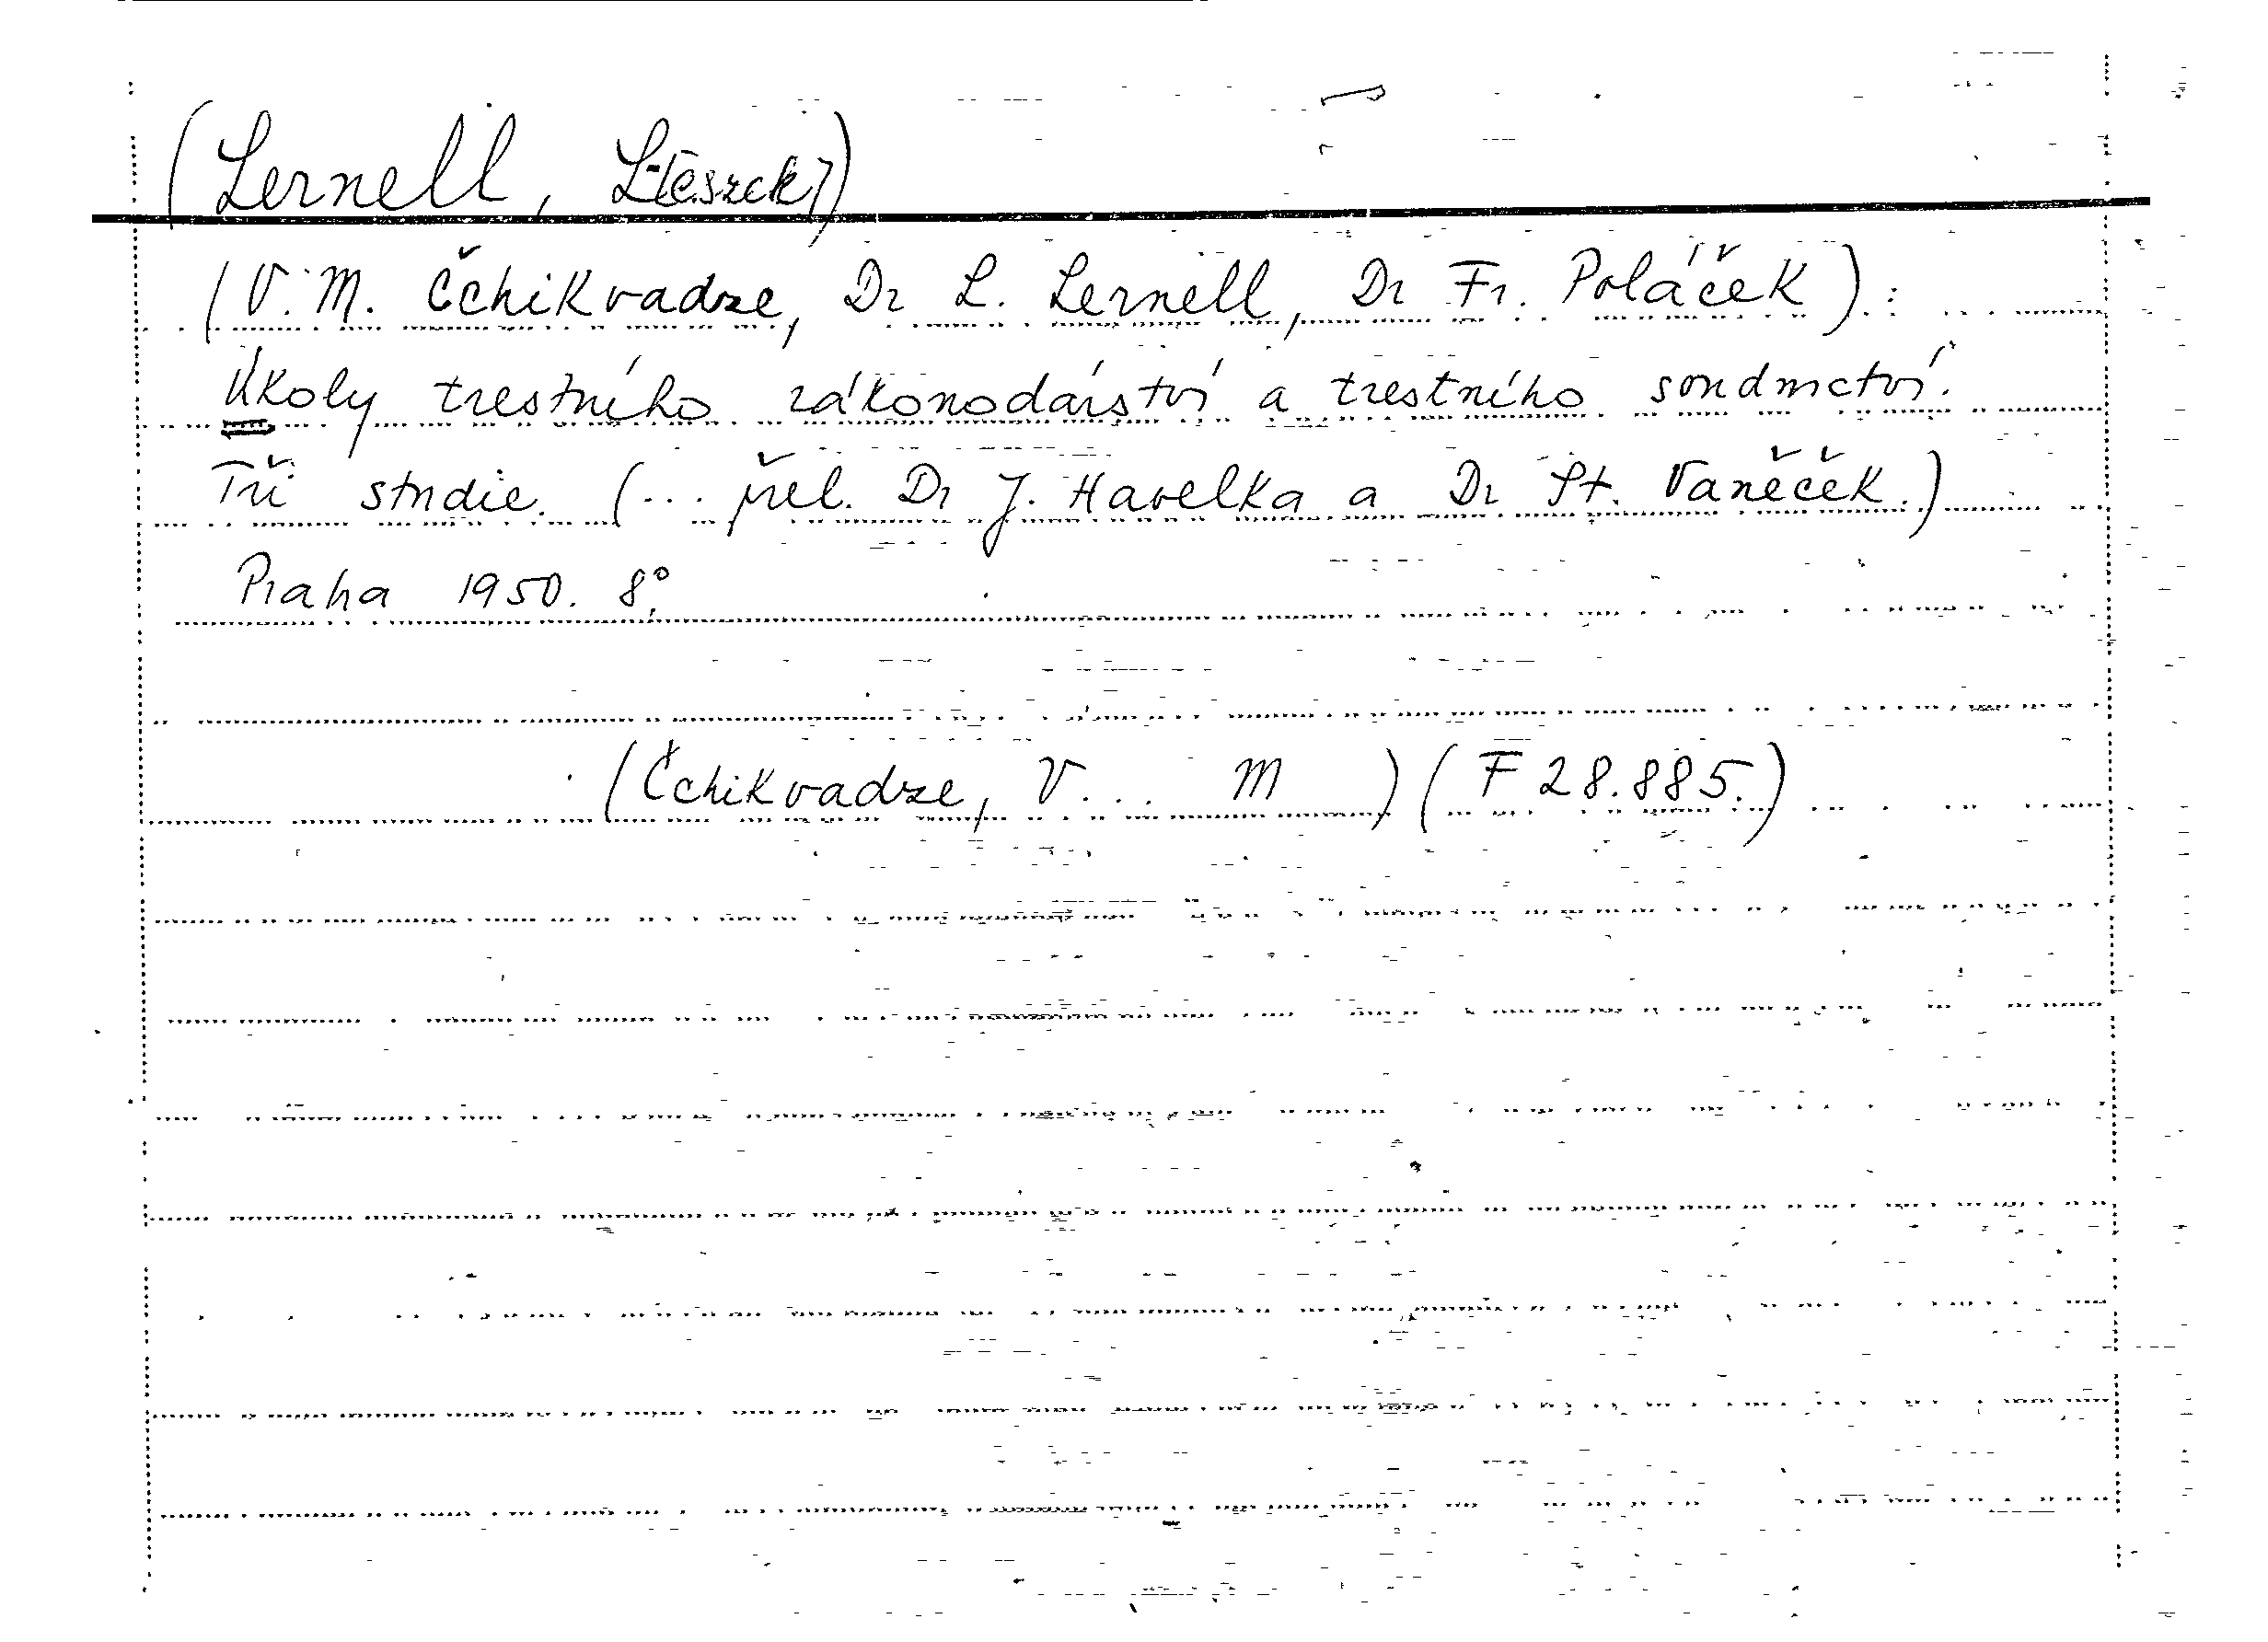 (Lernell, L[eszek])
(V. M. Čchikvadze, Dr L. Lernell, Dr Fr. Poláček):
Úkoly trestního zákonodárství a trestního soudnictví.
Tři studie. (... přel. Dr J. Havelka a Dr St. Vaněček.)
Praha 1950. 8°.
(Čchikvadze, V... M ) (F 28.885.)